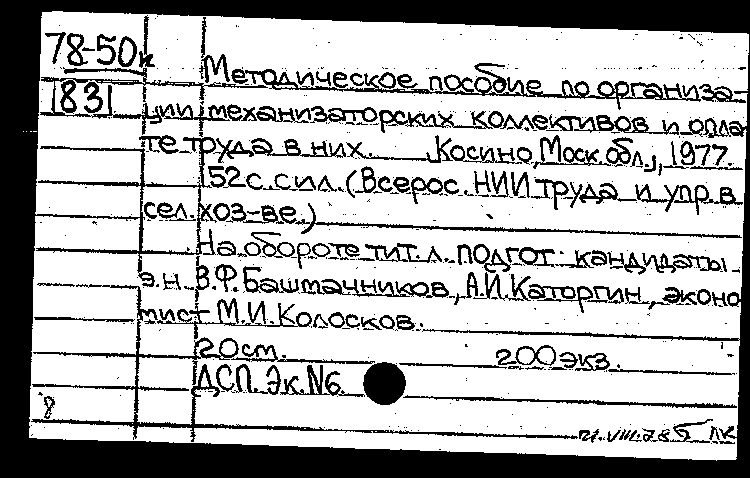 78-50к
Методическое пособие по организа-
1831
ции механизаторских коллективов и опла-
те труда в них. [Косино, Моск. обл.], 1977.
152 с. с ил. (Всерос. НИИ труда и упр. в
сел. хоз-ве.)
На обороте тит. л. подгот: кандидаты
э.н. В.Ф. Башмачников, А.И. Каторгин, эконо-
мист М.И. Колосков.
20 см. 200 экз.
ДСП. Эк. N6
8
21.VIII.78 Б ЛК